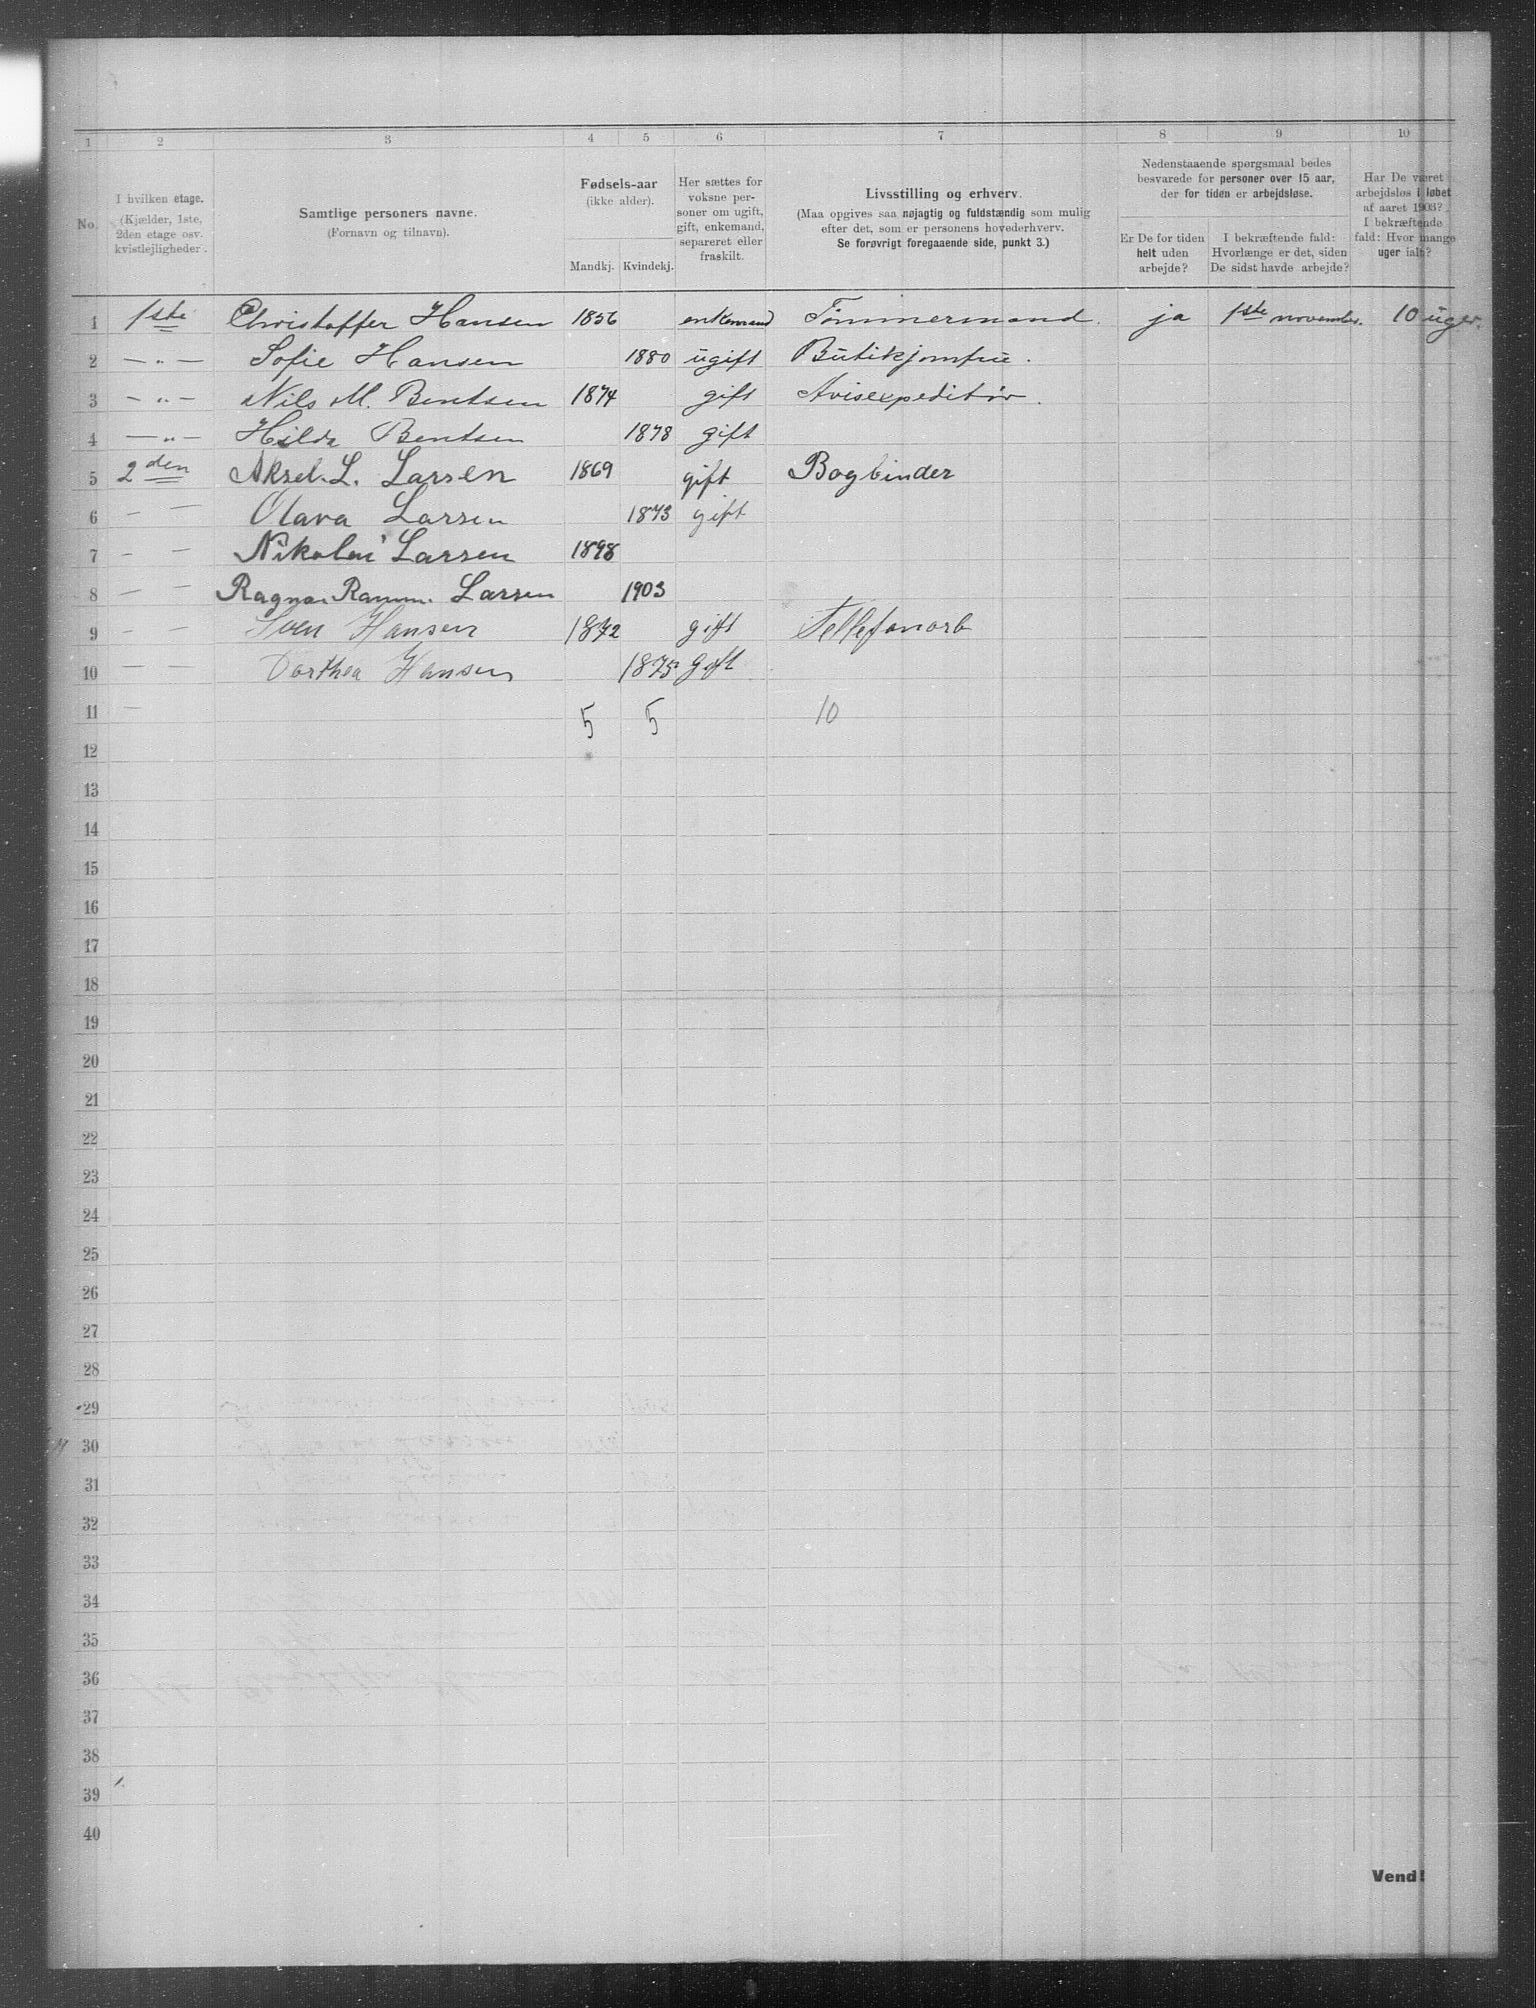 1 2 3 4 5 6 7 8 9 10
No.
I hvilken etage.
(Kjælder, 1ste,
2den etage osv.
kvistlejligheder).
Samtlige personers navne.
(Fornavn og tilnavn).
Fødsels-aar
(ikke alder).
Mandkj. Kvindekj.
Her sættes for
voksne per-
soner om ugift,
gift, enkemand,
separeret eller
fraskilt.
Livsstilling og erhverv.
(Maa opgives saa nøjagtig og fuldstændig som mulig
efter det, som er personens hovederhverv.
Se forøvrigt foregaaende side, punkt 3.)
Nedenstaaende spørgsmaal bedes
besvarede for personer over 15 aar,
der for tiden er arbejdsløse.
Er De for tiden
helt uden
arbejde?
I bekræftende fald:
Hvorlænge er det, siden
De sidst havde arbejde?
Har De været
arbejdsløs i løbet
af aaret 1903?
I bekræftende
fald: Hvor mange
uger ialt?
1 1ste Christoffer Hansen 1856 enkemand Tømmermand. ja 1ste november. 10 uger.
2 — „ — Sofie Hansen 1880 ugift Butikjomfru.
3 — „ — Nils M. Bentsen 1874 gift Avisexpeditør.
4 — „ — Hilda Bentsen 1878 gift
5 2den Aksel. L. Larsen 1869 gift Bogbinder
6 — — Olava Larsen 1873 gift
7 — — Nikolai Larsen 1898
8 — — Ragna Larsen 1903
9 — — Sven Hansen 1872 gift Tellefonarb
10 — — Dorthea Hansen 1875 gift
11 — — 5 5 10
12
13
14
15
16
17
18
19
20
21
22
23
24
25
26
27
28
29
30
31
32
33
34
35
36
37
38
39
40
Vend!